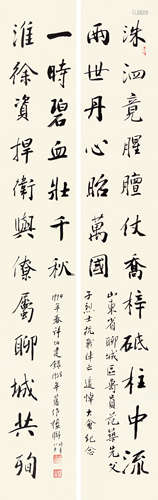 洙泗竟腥膻仗喬梓砥柱中流
兩世丹心昭萬國
山東省聊城區專員范築先父
子烈士抗戰陣亡追悼大會紀念
淮徐資捍衛與僚屬聊城共殉
一時碧血壯千秋
年春許伯建錄
年舊作輓聯